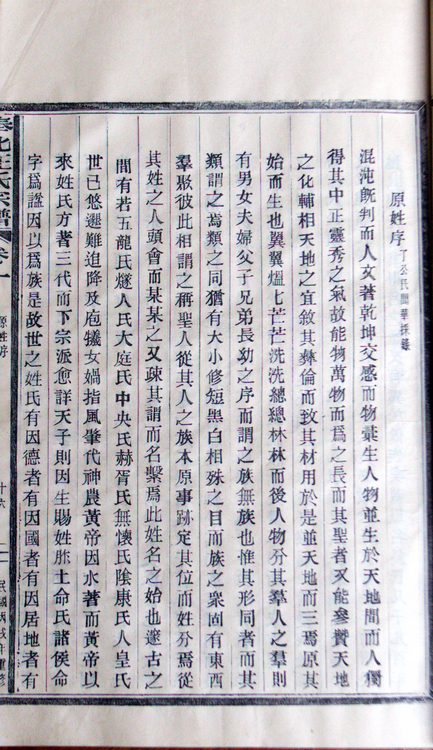 原姓序
混沌旣判而人文著乾坤交感而物彙生人物並生於天地間而人獨
得其中正靈秀之氣故能物萬物而爲之長而其聖者又能參贊天地
之化輔相天地之宜敘其彝倫而致其材用於是並天地而三焉原其
始而生也翼翼熅七芒芒洗洗總總林林而後人物分其羣人之羣則
有男女夫婦父子兄弟長幼之序而謂之族無族也惟其形同者而其
類謂之爲類之同猶有大小修短黑白相殊之目而族之衆固有東西
羣聚彼此相謂之稱聖人從其人之族本原事跡定其位而姓分焉從
其姓之人頭會而某某之又疎其謂而名繫焉此姓名之始也邃古之
間有若五龍氏燧人氏大庭氏中央氏赫胥氏無懷氏陰康氏人皇氏
世已悠邈難追降及庖犧女媧指風肇代神農黃帝因水著而黃帝以
來姓氏方著三代而下宗派愈詳天子則因生賜姓胙土命氏諸侯命
字爲諡因以爲族是故世之姓氏有因德者有因國者有因居地者有
氏宗譜 卷一
原姓序